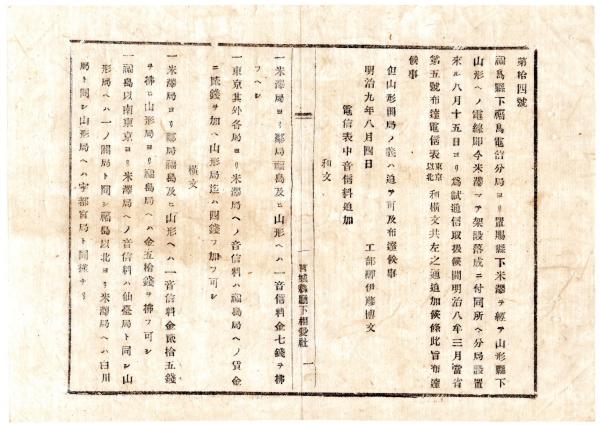 第拾四號
福島縣下福島電信分局ヨリ置賜縣下米澤ヲ經テ山形縣下
山形ヘノ電線即今米澤マテ架設落成ニ付同所ヘ分局設置
來ル八月十五日ヨリ爲試通信取扱候間明治八年三月當省
第五號布達電信表東京以北和横文共左之通追加候條此旨布達
候事
但山形開局ノ義ハ追テ可及布達候事
明治九年八月四日
工部卿伊藤博文
電信表中音信料追加
和文
宮城縣廳下相愛社
一
一米澤局ヨリ鄰局福島及ヒ山形ヘハ一音信料金七錢ヲ拂
フヘシ
一東京其外各局ヨリ米澤局ヘノ音信料ハ福島局ヘノ賃金
ニ貳錢ヲ加ヘ山形局迄ハ四錢ヲ加フ可シ
横文
一米澤局ヨリ鄰局福島及ヒ山形ヘハ一音信料金貳拾五錢
ヲ拂ヒ山形局ヨリ福島局ヘハ金五拾錢ヲ拂フ可シ
一福島以南東京ヨリ米澤局ヘノ音信料ハ仙臺局ト同シ山
形局ヘハ一ノ關局ト同シ福島以北ヨリ米澤局ヘハ白川
局ト同シ山形局ヘハ宇都宮局ト同樣ナリ